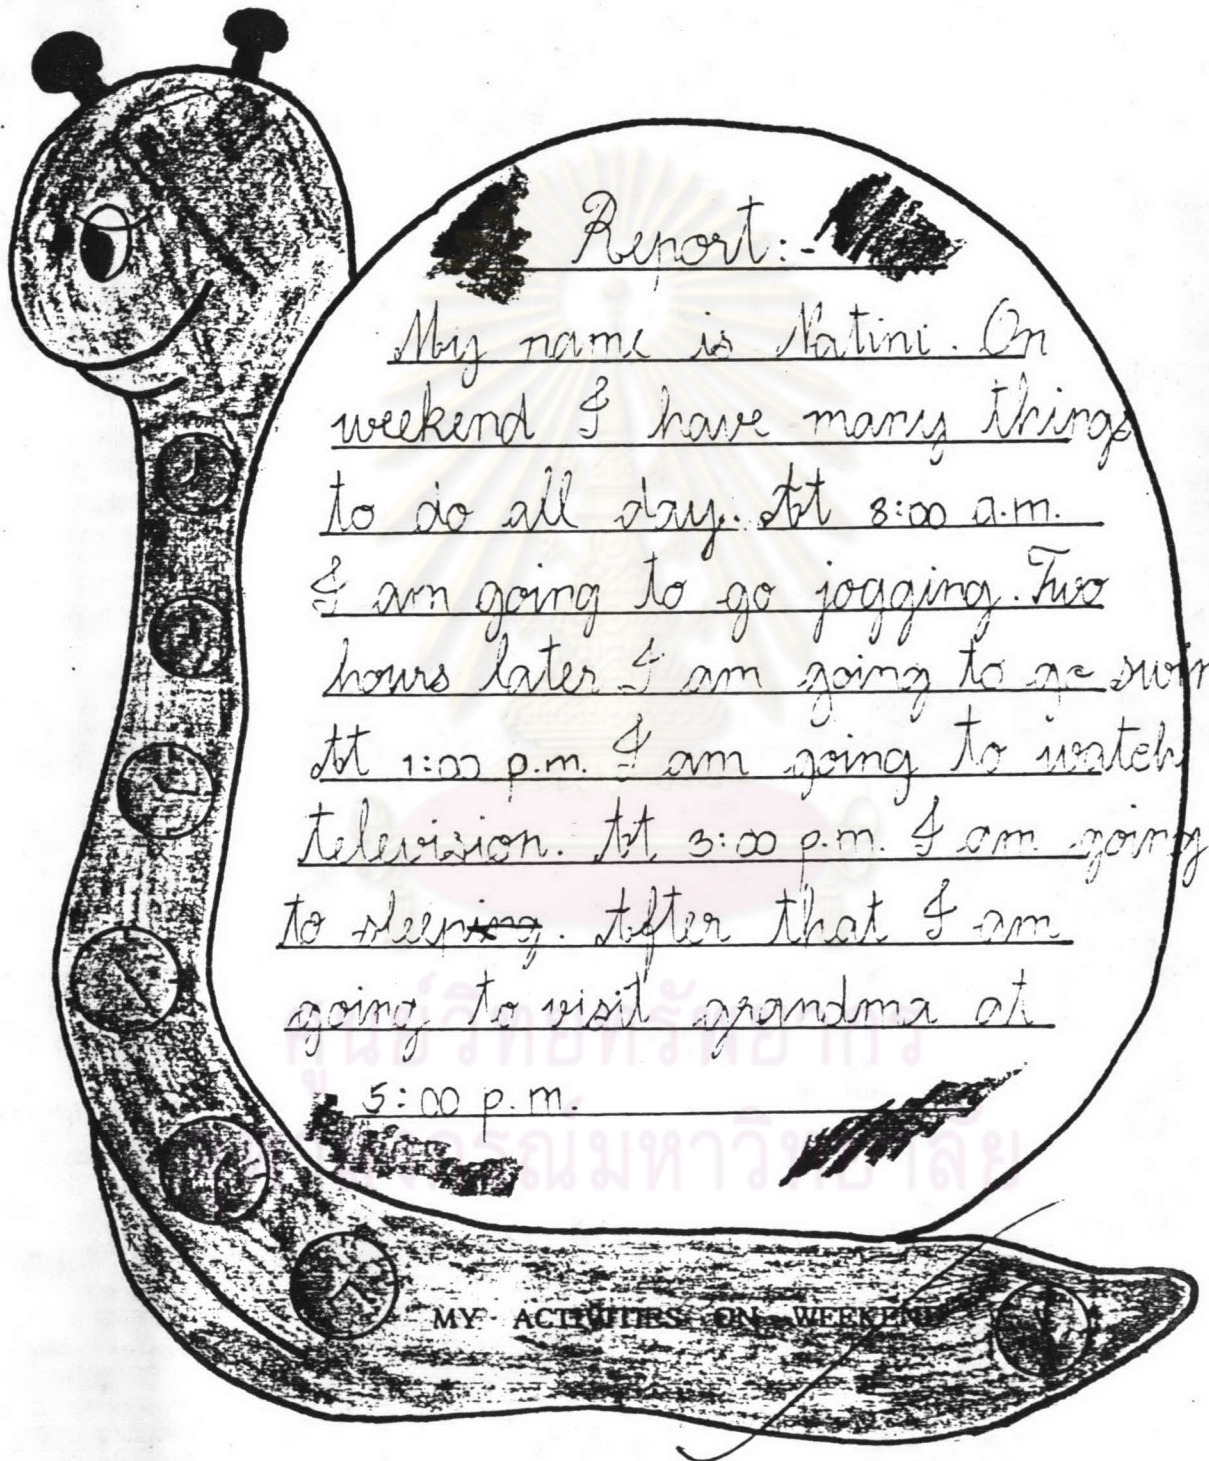 Report:-
My name is Natini. On
weekend I have many things
to do all day. At 8:00 a.m.
I am going to go jogging. Two
hours later I am going to go swim
At 1:00 p.m. I am going to watch
television. At 3:00 p.m. I am going
to sleep. After that I am
going to visit grandma at
5:00 p.m.
ศูนย์วิทยทรัพยากร
จุฬาลงกรณ์มหาวิทยาลัย
MY ACTIVITIES ON WEEKEND